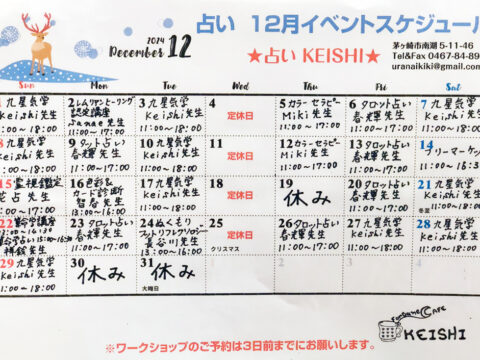 占い 12月イベントスケジュール
2024
December 12
★占い KEISHI★
茅ヶ崎市南湖 5-11-46
Tel&Fax 0467-84-89
uranaikiki@gmail.com
Sun Mon Tue Wed Thu Fri Sat
1 九星気学
Keishi先生
11:00〜18:00
2
認定講座
Sanae先生
11:00〜17:00
3 九星気学
Keishi先生
11:00〜18:00
4
定休日
5 カラーセラピー
Miki先生
11:00〜17:00
6 タロット占い
春輝先生
11:00〜17:00
7 九星気学
Keishi先生
11:00〜18:00
8 九星気学
Keishi先生
11:00〜18:00
9 タロット占い
春輝先生
11:00〜17:00
10 九星気学
Keishi先生
11:00〜18:00
11
定休日
12 カラーセラピー
Miki先生
11:00〜17:00
13 タロット占い
春輝先生
11:00〜17:00
14
フリーマーケット
15
先生
16
カード診断
先生
17 九星気学
Keishi先生
11:00〜18:00
18
定休日
19
休み
20 タロット占い
春輝先生
11:00〜17:00
21 九星気学
Keishi先生
11:00〜18:00
冬至
22
先生
23 タロット占い
春輝先生
11:00〜17:00
24 ぬくもり
フットリフレクソロジー
長谷川先生
25
定休日
クリスマス
26 タロット占い
春輝先生
11:00〜17:00
27 九星気学
Keishi先生
11:00〜18:00
28 九星気学
Keishi先生
11:00〜18:00
29 九星気学
Keishi先生
11:00〜18:00
30
休み
31
休み
大晦日
1 2 3 4
Fortune Cafe
KEISHI
※ワークショップのご予約は3日前までにお願いします。